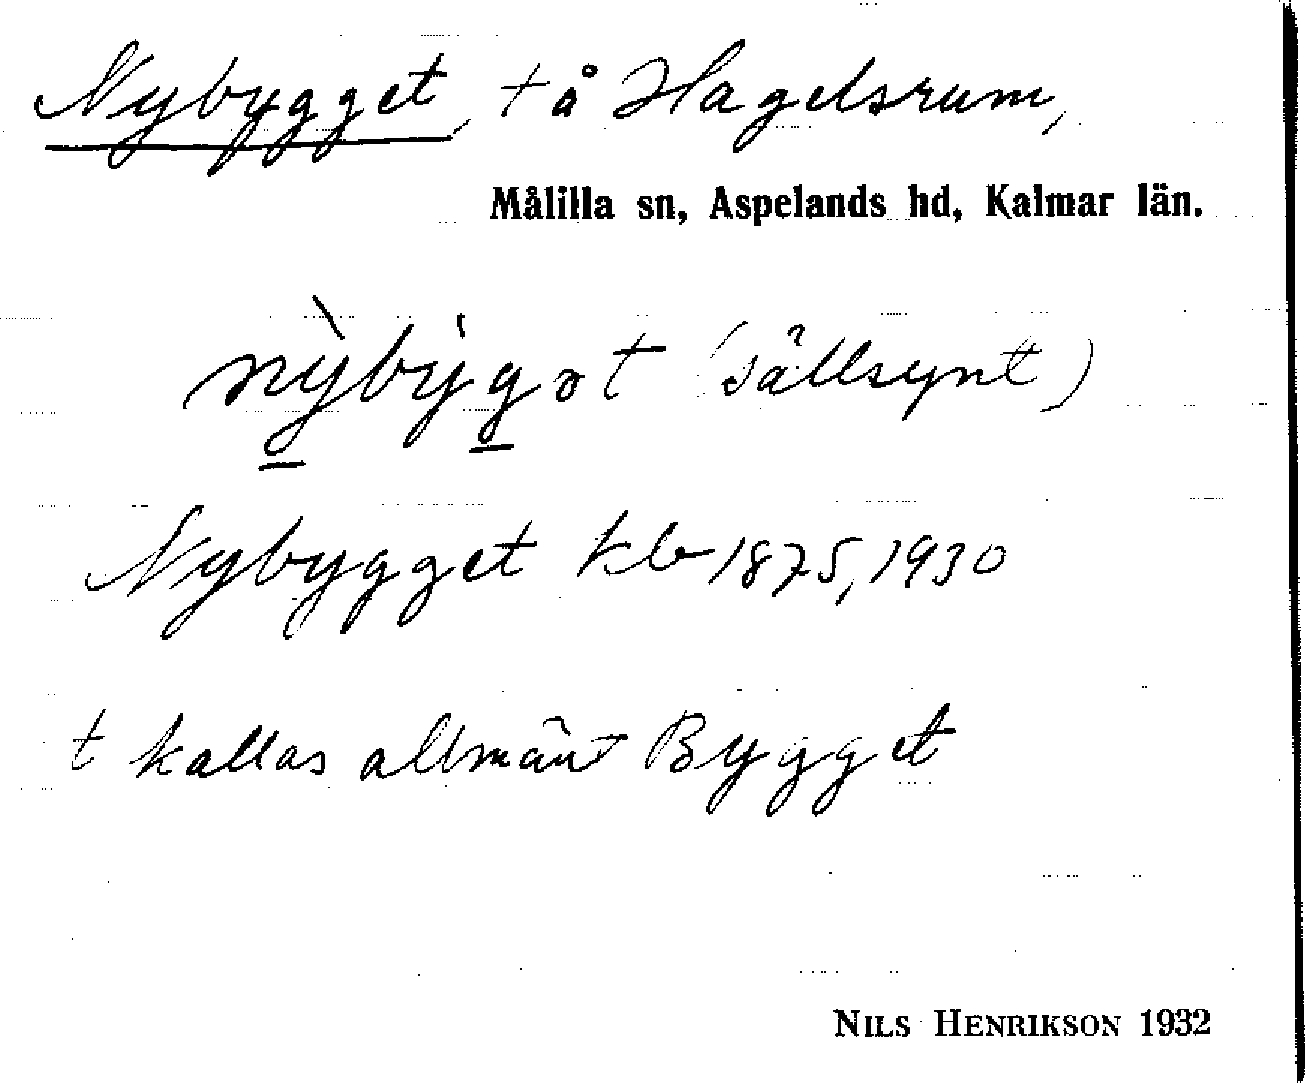 Nybygget, t å Hagelsrum,
Målilla sn, Aspelands hd, Kalmar län.
nỳbýgət (sällsynt)
Nybygget kb 1875, 1930
t kallas allmänt Bygget
NILS HENRIKSON 1932